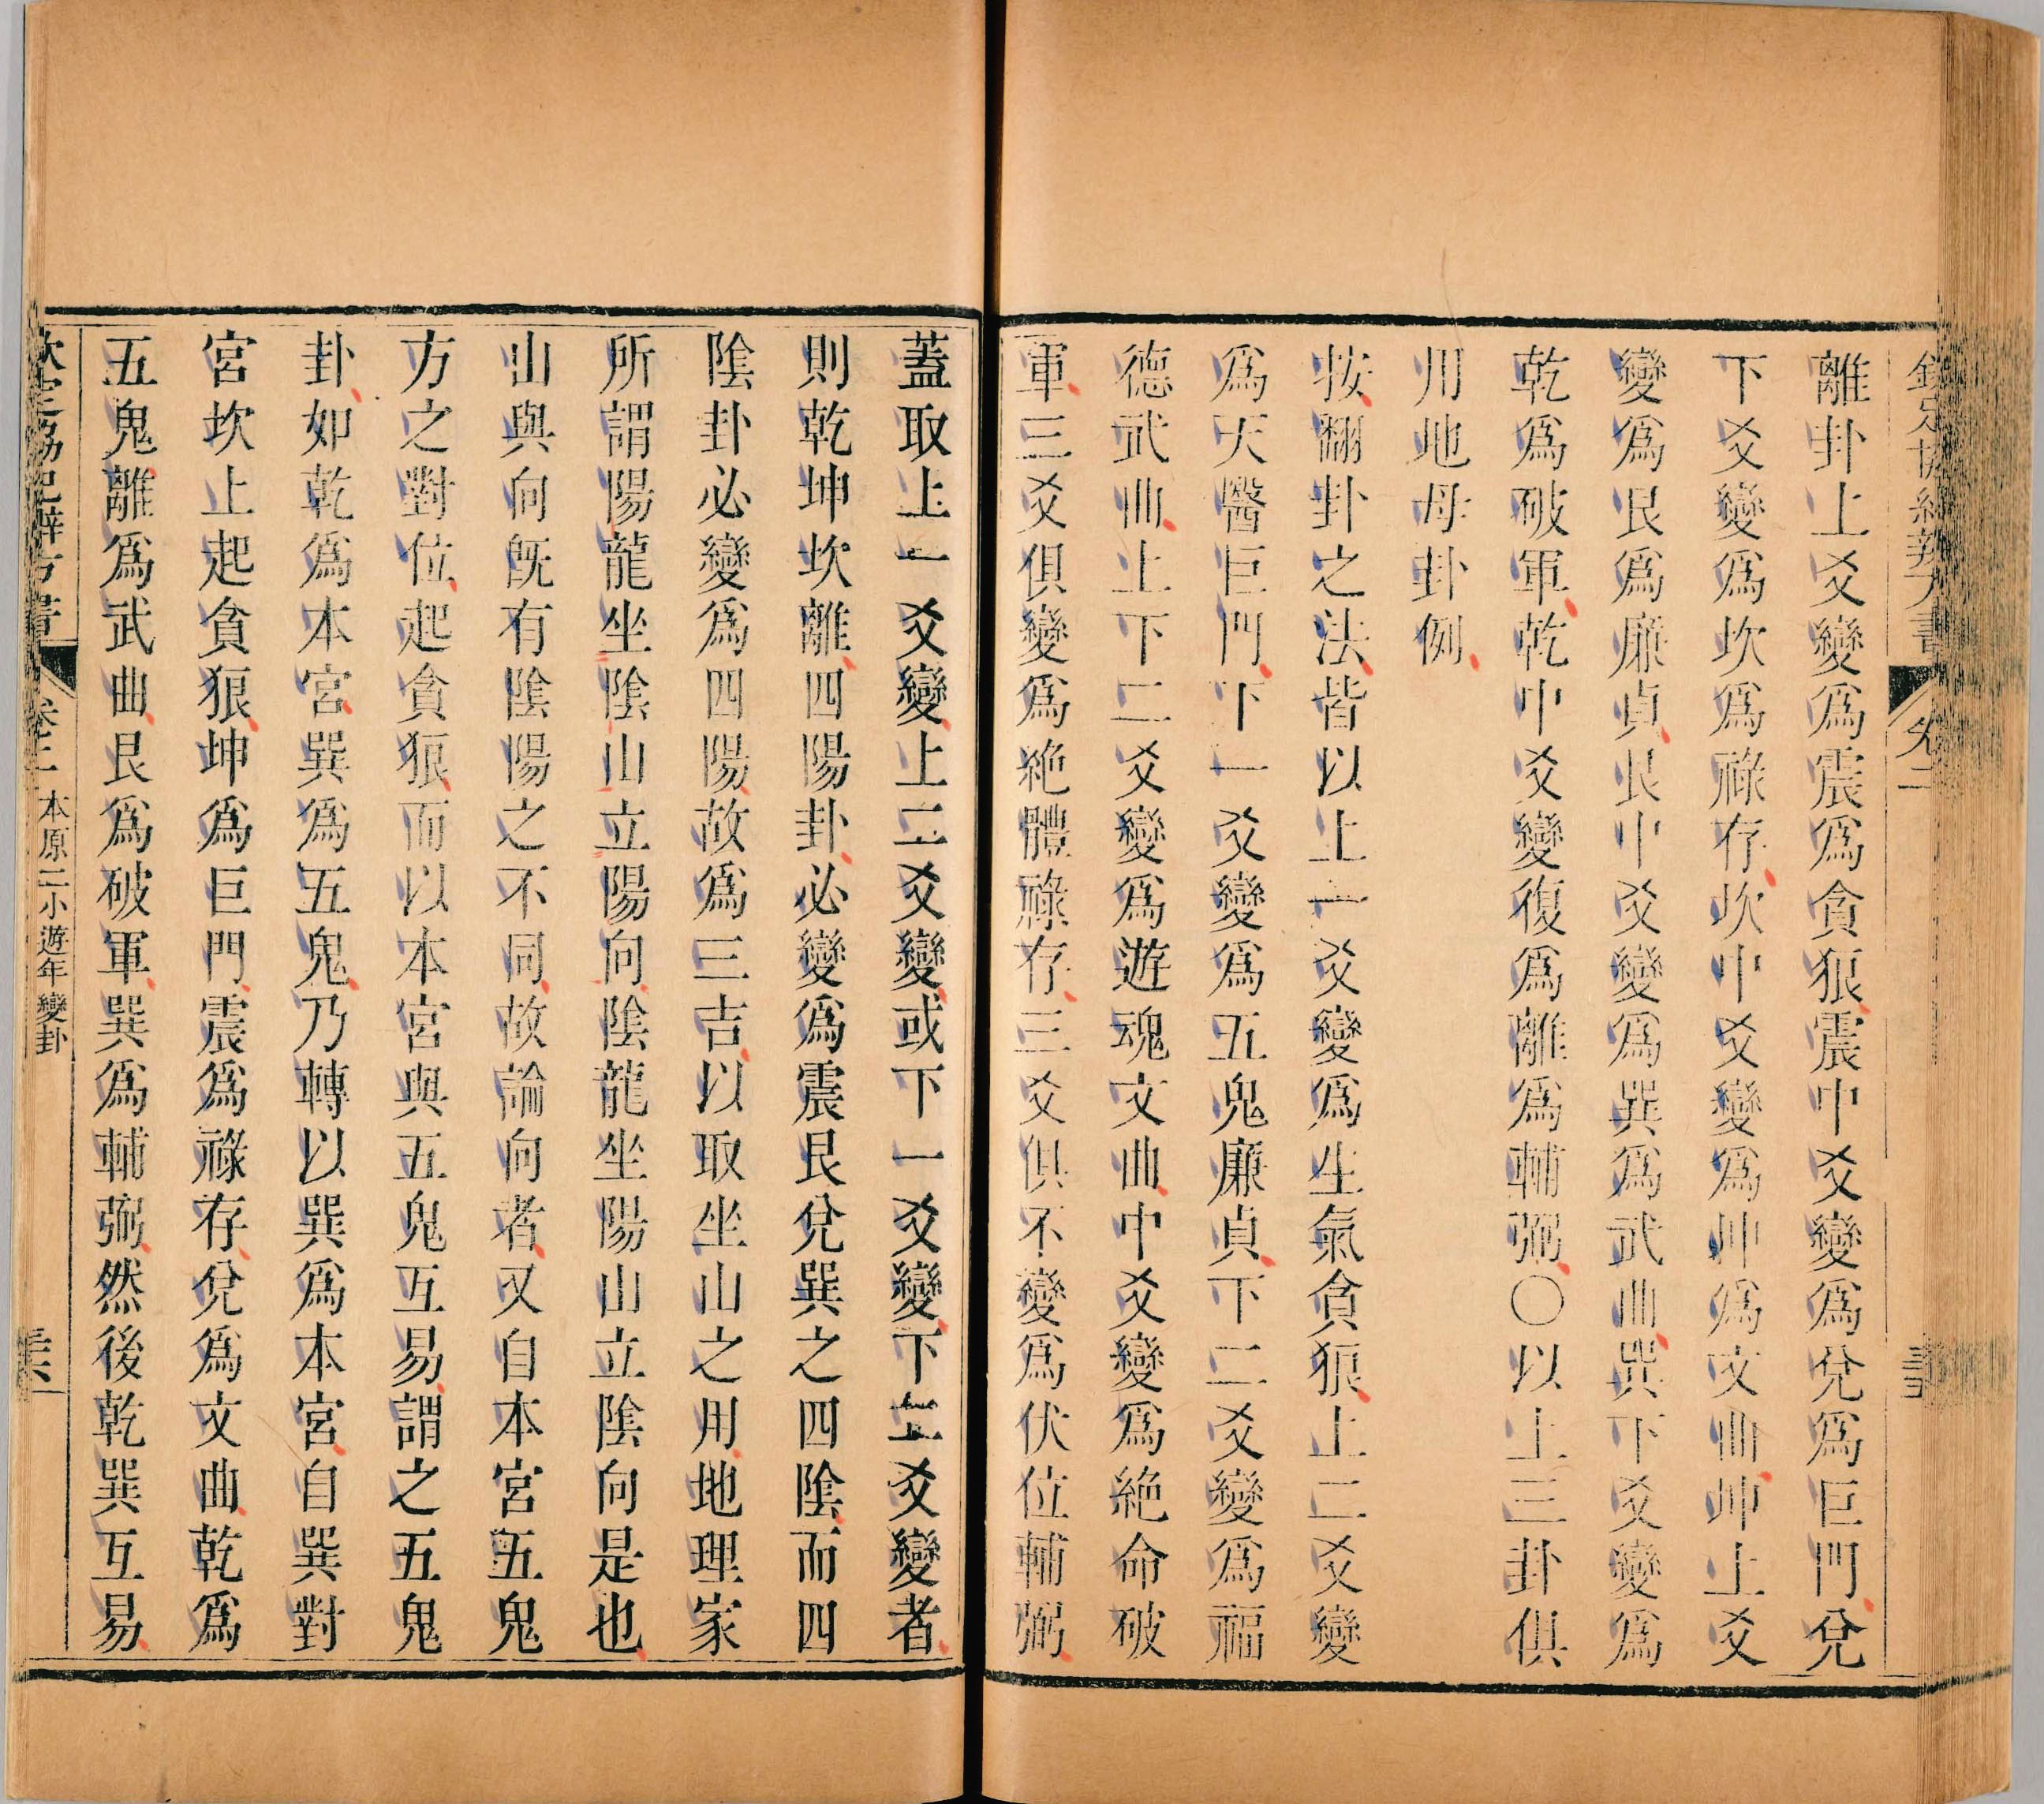 離卦上爻變爲震爲貪狼震中爻變爲兌爲巨門兌
下爻變爲坎爲祿存坎中爻變爲坤爲文曲坤上爻
變爲艮爲廉貞艮中爻變爲巽爲武曲巽下爻變爲
乾爲破軍乾中爻變復爲離爲輔弼〇以上三卦俱
用地母卦例
按翻卦之法皆以上一爻變爲生氣貪狼上二爻變
爲天醫巨門下一爻變爲五鬼廉貞下二爻變爲福
德武曲上下二爻變爲遊魂文曲中爻變爲絶命破
軍三爻俱變爲絶體祿存三爻俱不變爲伏位輔弼
蓋取上一爻變上二爻變或下一爻變下二爻變者
則乾坤坎離四陽卦必變爲震艮兌巽之四陰而四
陰卦必變爲四陽故爲三吉以取坐山之用地理家
所謂陽龍坐陰山立陽向陰龍坐陽山立陰向是也
山與向旣有陰陽之不同故論向者又自本宮五鬼
方之對位起貪狼而以本宮與五鬼互易謂之五鬼
卦如乾爲本宮巽爲五鬼乃轉以巽爲本宮自巽對
宮坎上起貪狼坤爲巨門震爲祿存兌爲文曲乾爲
五鬼離爲武曲艮爲破軍巽爲輔弼然後乾巽互易
卷二 本原二小遊年變卦